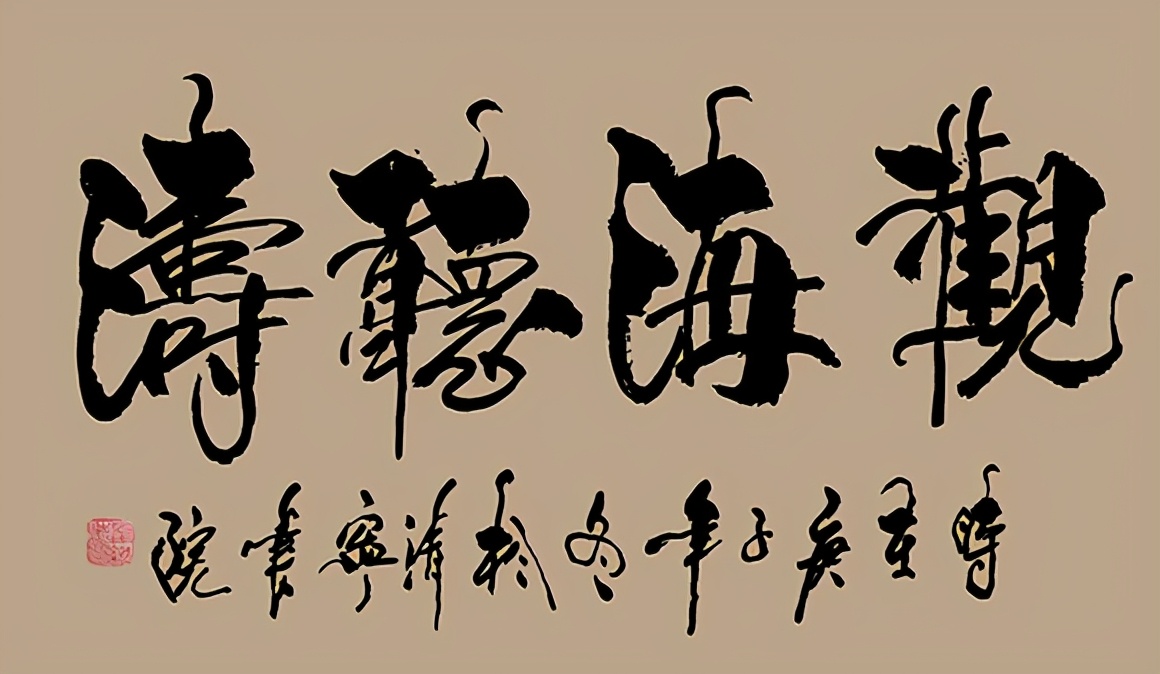 觀海聽濤
時在庚子年冬於清寧書院